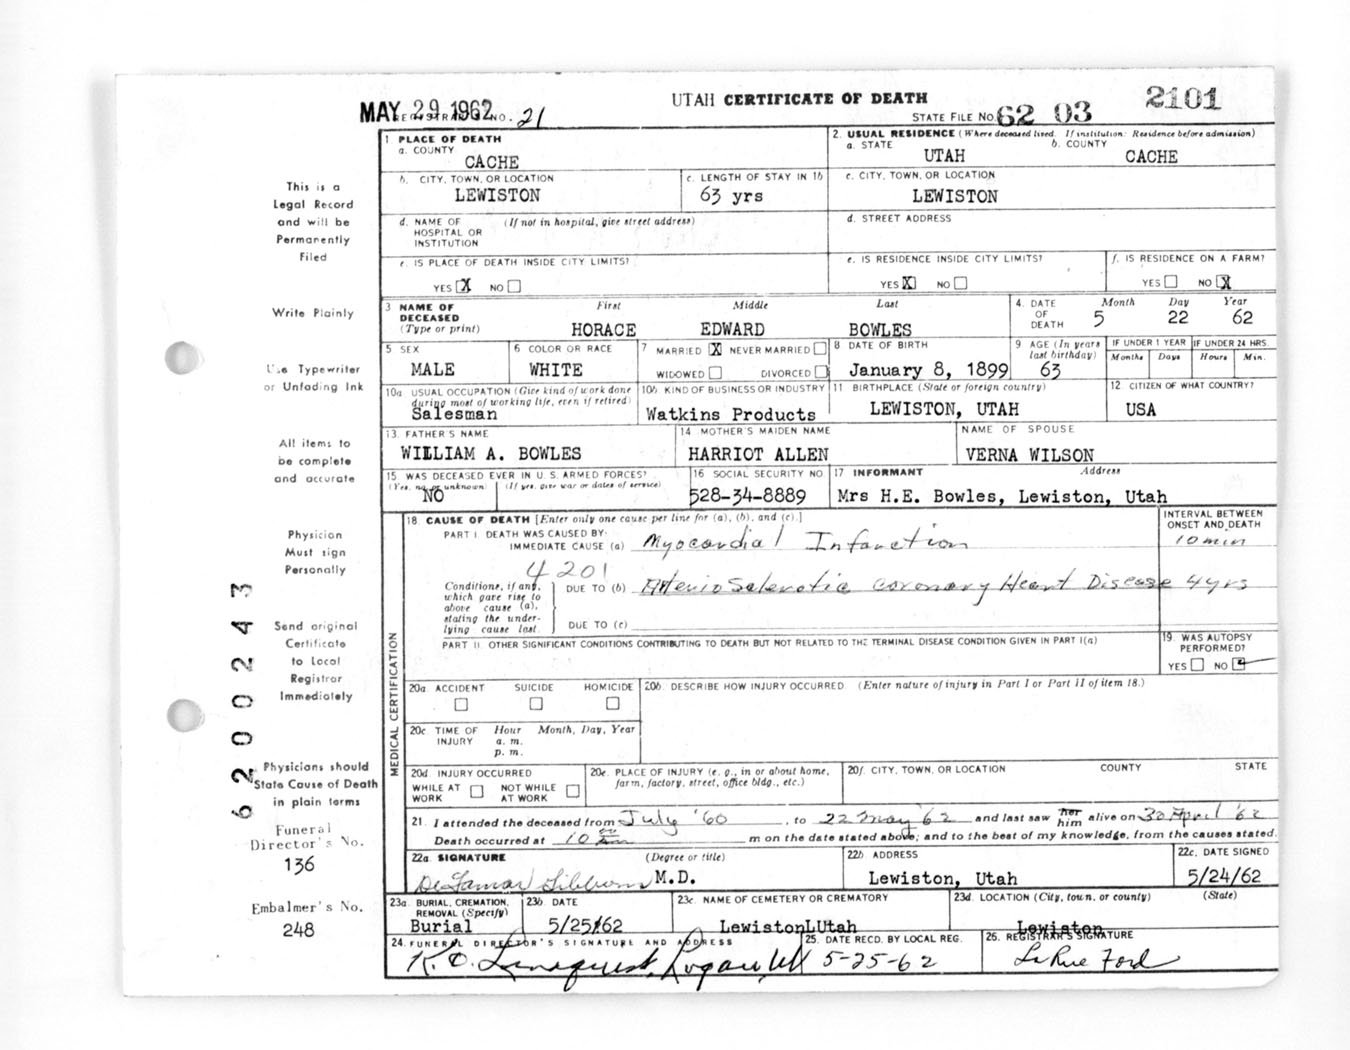 MAY 29 1962
REGISTRAR'S NO. 21
UTAH CERTIFICATE OF DEATH
STATE FILE NO. 62 03 2101
1 PLACE OF DEATH
a. COUNTY
CACHE
2. USUAL RESIDENCE (Where deceased lived. If institution: Residence before admission)
a. STATE
UTAH
b. COUNTY
CACHE
b. CITY, TOWN, OR LOCATION
LEWISTON
c. LENGTH OF STAY IN 1b
63 yrs
c. CITY, TOWN, OR LOCATION
LEWISTON
d. NAME OF HOSPITAL OR INSTITUTION
(If not in hospital, give street address)
d. STREET ADDRESS
e. IS PLACE OF DEATH INSIDE CITY LIMITS?
YES X NO
e. IS RESIDENCE INSIDE CITY LIMITS?
YES X NO
f. IS RESIDENCE ON A FARM?
YES NO X
3 NAME OF DECEASED
(Type or print)
First Middle Last
HORACE EDWARD BOWLES
4. DATE OF DEATH
Month Day Year
5 22 62
5 SEX
MALE
6 COLOR OR RACE
WHITE
7 MARRIED X NEVER MARRIED
WIDOWED DIVORCED
8 DATE OF BIRTH
January 8, 1899
9 AGE (In years last birthday)
63
IF UNDER 1 YEAR
Months Days
IF UNDER 24 HRS.
Hours Min.
10a USUAL OCCUPATION (Give kind of work done during most of working life, even if retired)
Salesman
10b KIND OF BUSINESS OR INDUSTRY
Watkins Products
11 BIRTHPLACE (State or foreign country)
LEWISTON, UTAH
12 CITIZEN OF WHAT COUNTRY?
USA
13. FATHER'S NAME
WILLIAM A. BOWLES
14 MOTHER'S MAIDEN NAME
HARRIOT ALLEN
NAME OF SPOUSE
VERNA WILSON
15 WAS DECEASED EVER IN U.S. ARMED FORCES?
(Yes, no, or unknown) (If yes, give war or dates of service)
NO
16 SOCIAL SECURITY NO.
528-34-8889
17 INFORMANT Address
Mrs H.E. Bowles, Lewiston, Utah
MEDICAL CERTIFICATION
18 CAUSE OF DEATH [Enter only one cause per line for (a), (b), and (c).]
INTERVAL BETWEEN ONSET AND DEATH
PART I. DEATH WAS CAUSED BY:
IMMEDIATE CAUSE (a) Myocardial Infarction 10 min
4201
Conditions, if any, which gave rise to above cause (a), stating the underlying cause last.
DUE TO (b) Arterio Sclerotic Coronary Heart Disease 4 yrs
DUE TO (c)
PART II. OTHER SIGNIFICANT CONDITIONS CONTRIBUTING TO DEATH BUT NOT RELATED TO THE TERMINAL DISEASE CONDITION GIVEN IN PART I(a)
19. WAS AUTOPSY PERFORMED?
YES NO
20a. ACCIDENT SUICIDE HOMICIDE
20b. DESCRIBE HOW INJURY OCCURRED. (Enter nature of injury in Part I or Part II of item 18.)
20c TIME OF INJURY
Hour Month, Day, Year
a. m.
p. m.
20d. INJURY OCCURRED
WHILE AT WORK NOT WHILE AT WORK
20e. PLACE OF INJURY (e. g., in or about home, farm, factory, street, office bldg., etc.)
20f. CITY, TOWN, OR LOCATION COUNTY STATE
21. I attended the deceased from July '60, to 22 May '62 and last saw her him alive on 30 April '62
Death occurred at 10 00 m on the date stated above; and to the best of my knowledge, from the causes stated.
22a. SIGNATURE (Degree or title)
M.D.
22b ADDRESS
Lewiston, Utah
22c. DATE SIGNED
5/24/62
23a. BURIAL, CREMATION, REMOVAL (Specify)
Burial
23b DATE
5/25/62
23c. NAME OF CEMETERY OR CREMATORY
LewistonLUtah
23d. LOCATION (City, town, or county) (State)
Lewiston
24. FUNERAL DIRECTOR'S SIGNATURE AND ADDRESS
K. O. Lindquist, Logan, Ut
25. DATE RECD. BY LOCAL REG.
5-25-62
26. REGISTRAR'S SIGNATURE
LaRue Ford
This is a
Legal Record
and will be
Permanently
Filed
Write Plainly
Use Typewriter
or Unfading Ink
All items to
be complete
and accurate
Physician
Must sign
Personally
Send original
Certificate
to Local
Registrar
Immediately
Physicians should
State Cause of Death
in plain terms
Funeral
Director's No.
136
Embalmer's No.
248
6200243